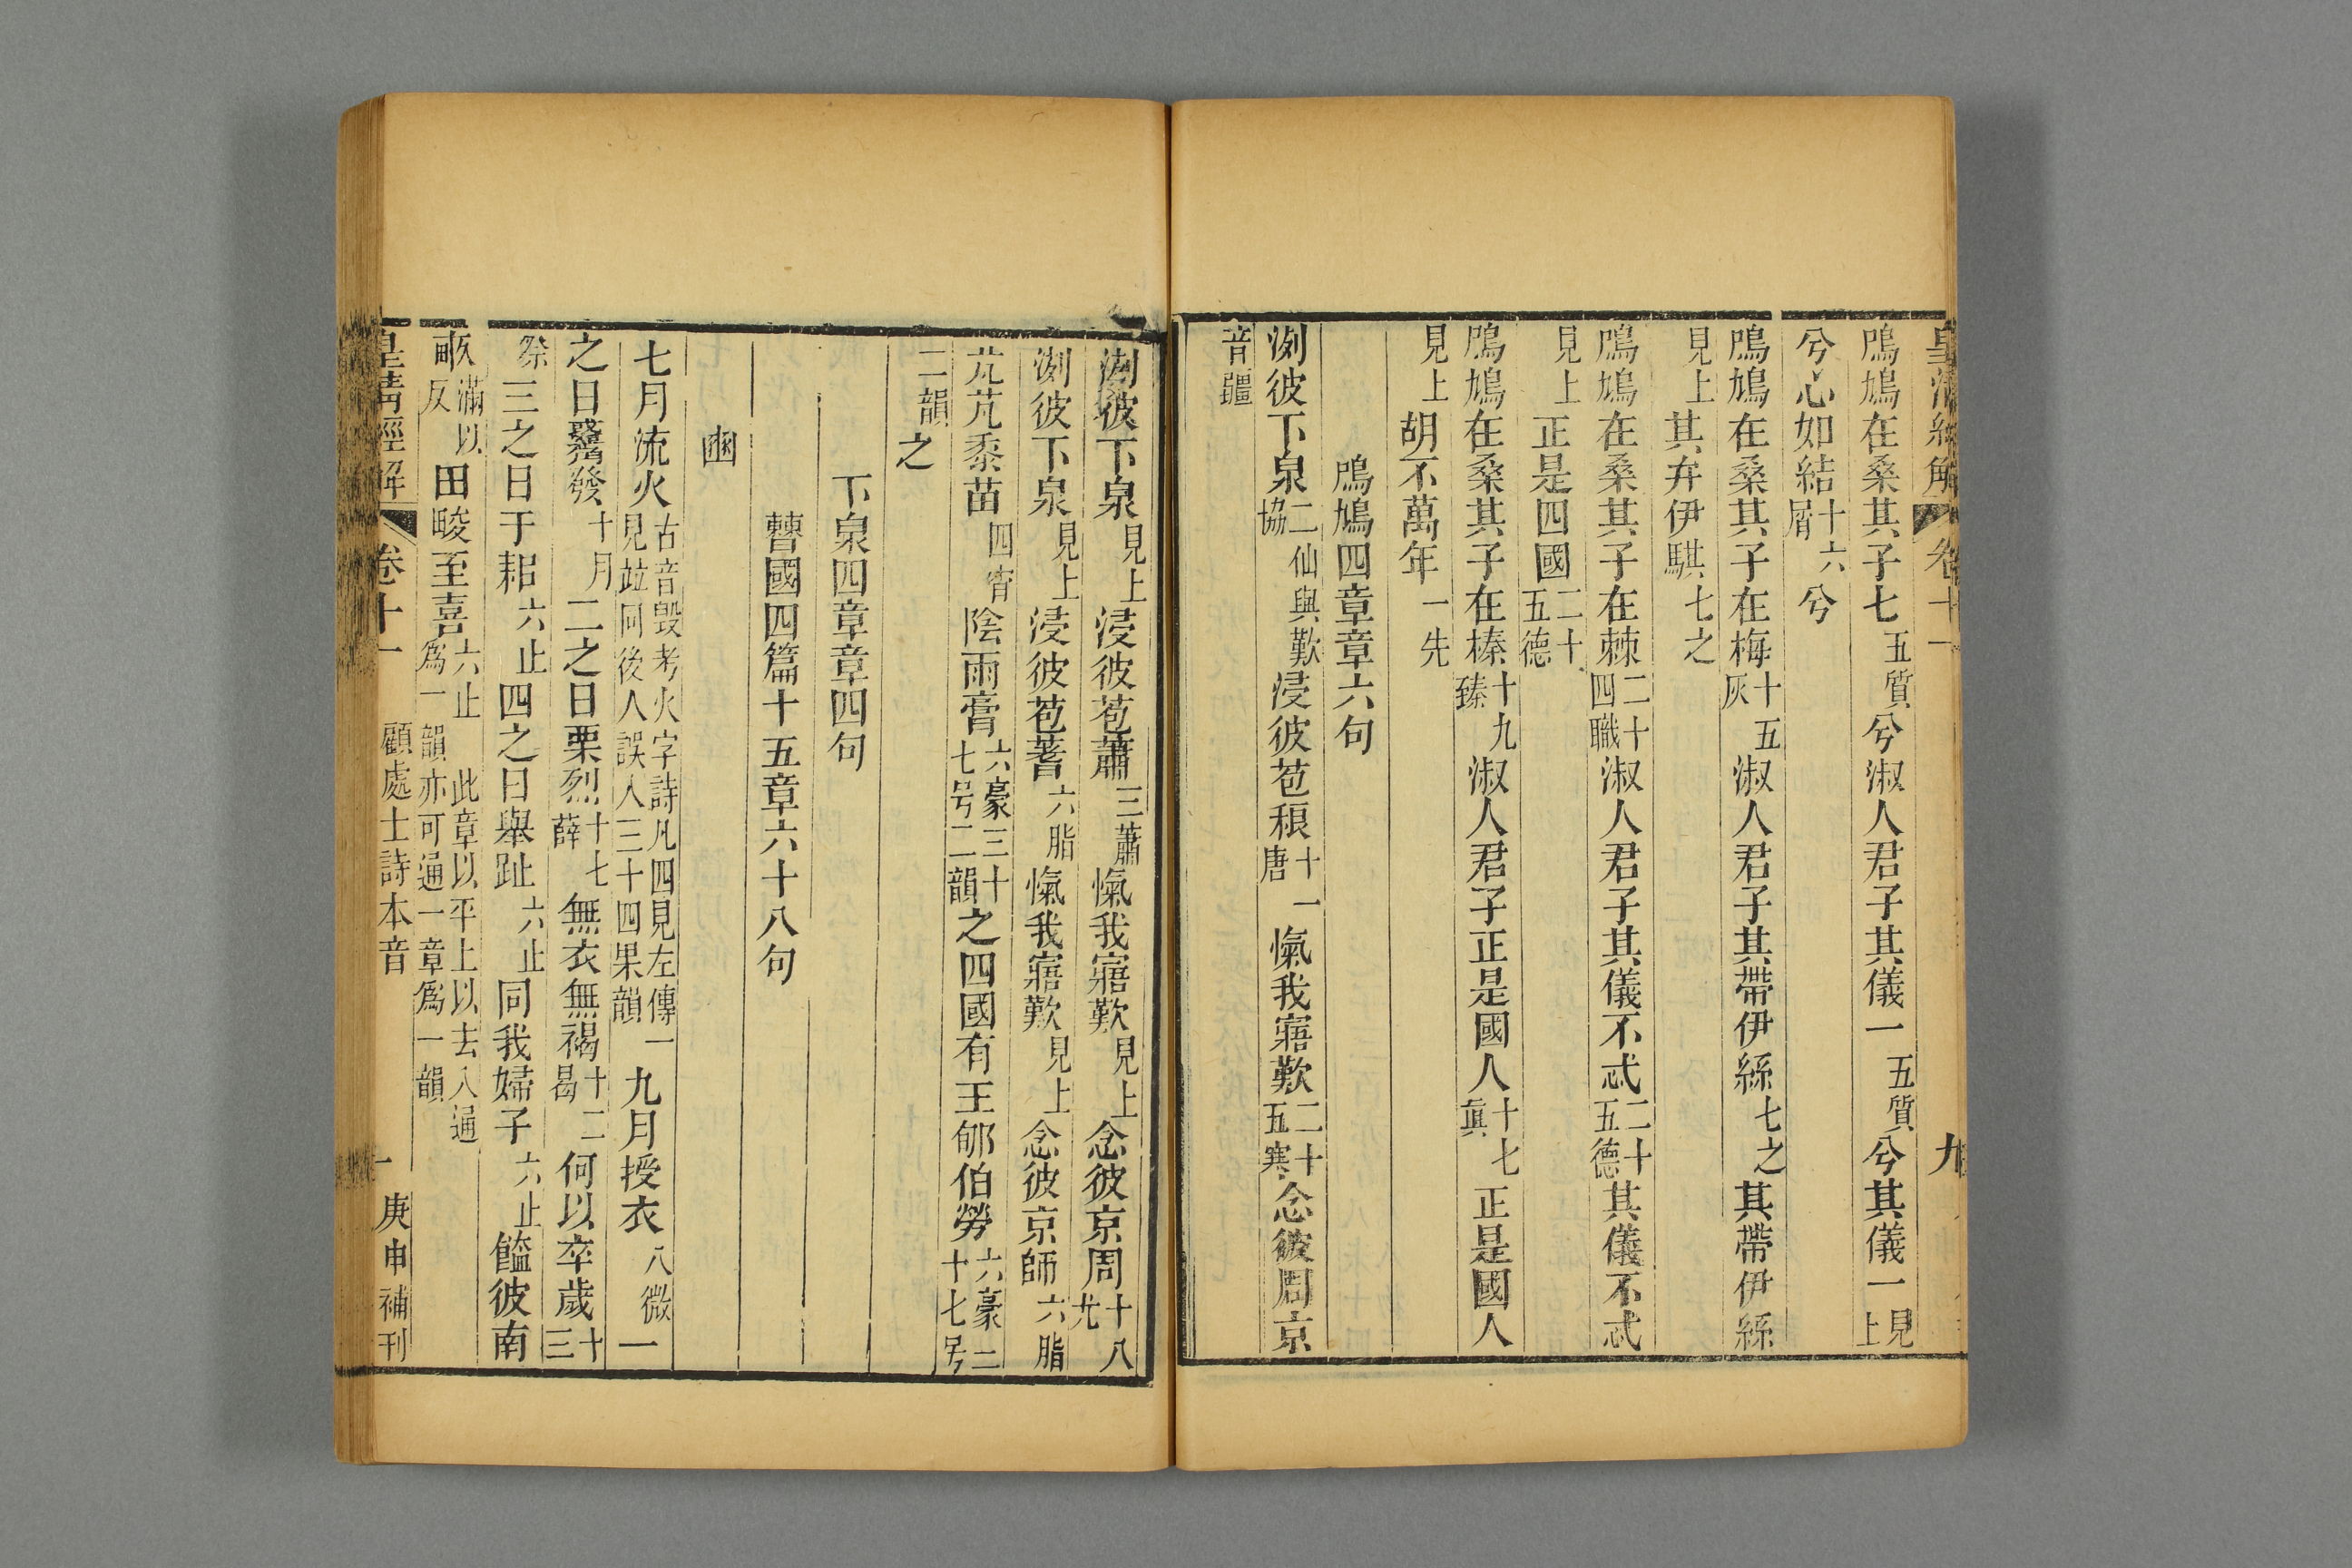 皇清經解 卷十一 九
鳲鳩在桑其子七五質兮淑人君子其儀一五質兮其儀一見上
兮心如結十六屑兮
鳲鳩在桑其子在梅十五灰淑人君子其帶伊絲七之其帶伊絲
見上其弁伊騏七之
鳲鳩在桑其子在棘二十四職淑人君子其儀不忒二十五德其儀不忒
見上正是四國二十五德
鳲鳩在桑其子在榛十九臻淑人君子正是國人十七真正是國人
見上胡不萬年一先
鳲鳩四章章六句
洌彼下泉二仙與歎協浸彼苞稂十一唐愾我寤歎二十五寒念彼周京
音疆
洌彼下泉見上浸彼苞蕭三蕭愾我寤歎見上念彼京周十八尤
洌彼下泉見上浸彼苞蓍六脂愾我寤歎見上念彼京師六脂
芃芃黍苗四宵陰雨膏六豪三十七号二韻之四國有王郇伯勞六豪三十七号
二韻之
下泉四章章四句
曹國四篇十五章六十八句
豳
七月流火古音毀考火字詩凡四見左傳一見竝同後人誤入三十四果韻九月授衣八微一
之日觱發十月二之日栗烈十七薛無衣無褐十二曷何以卒歲十三
祭三之日于耜六止四之日舉趾六止同我婦子六止饁彼南
畝滿以反田畯至喜六止此章以平上以去入通為一韻亦可通一章為一韻
皇清經解 卷十一 顧處士詩本音 一 庚申補刊